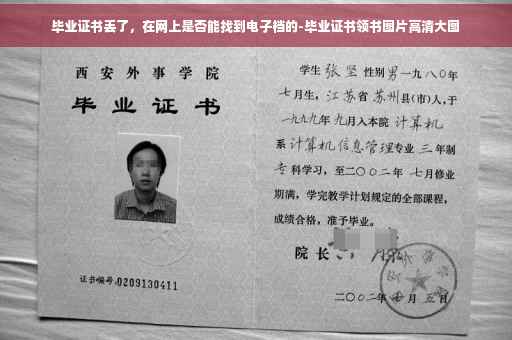 毕业证书丢了，在网上是否能找到电子档的-毕业证书领书图片高清大图
西安外事学院
毕业证书
证书编号:0209130411
学生张坚性别男一九八〇年
七月生，江苏省苏州县(市)人,于
一九九九年九月入本院计算机
系计算机信息管理专业三年制
专科学习，至二〇〇二年七月修业
期满，学完教学计划规定的全部课程，
成绩合格，准予毕业。
院长
二〇〇二年七月五日